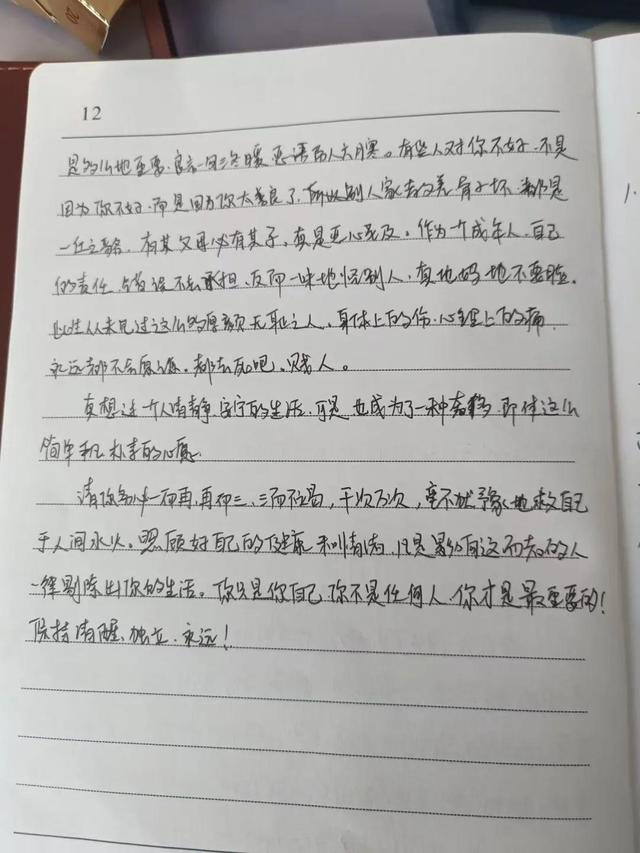 12
是多么地重要。良言一句三冬暖,恶语伤人六月寒。有些人对你不好,不是
因为你不好,而是因为你太善良了,所以别人家 都是
一丘之貉,有其父母必有其子,真是恶心至及。作为一个成年人,自己
的责任 不去承担,反而一味地怪别人,真他妈地不要脸。
此生从未见过这么的厚颜无耻之人,身体上的伤,心理上的痛,
永远都不会原谅。都去死吧,贱人。
真想过一个人清静、安宁的生活,可是也成为了一种奢移,即使这么
简单和朴素的心愿。
请你务必一而再,再而三,三而不竭,千次万次,毫不犹豫地救自己
于人间水火。照顾好自己的健康和情绪,凡是 的人
一律剔除出你的生活。你只是你自己,你不是任何人,你才是最重要的!
保持清醒、独立、永远!
1.